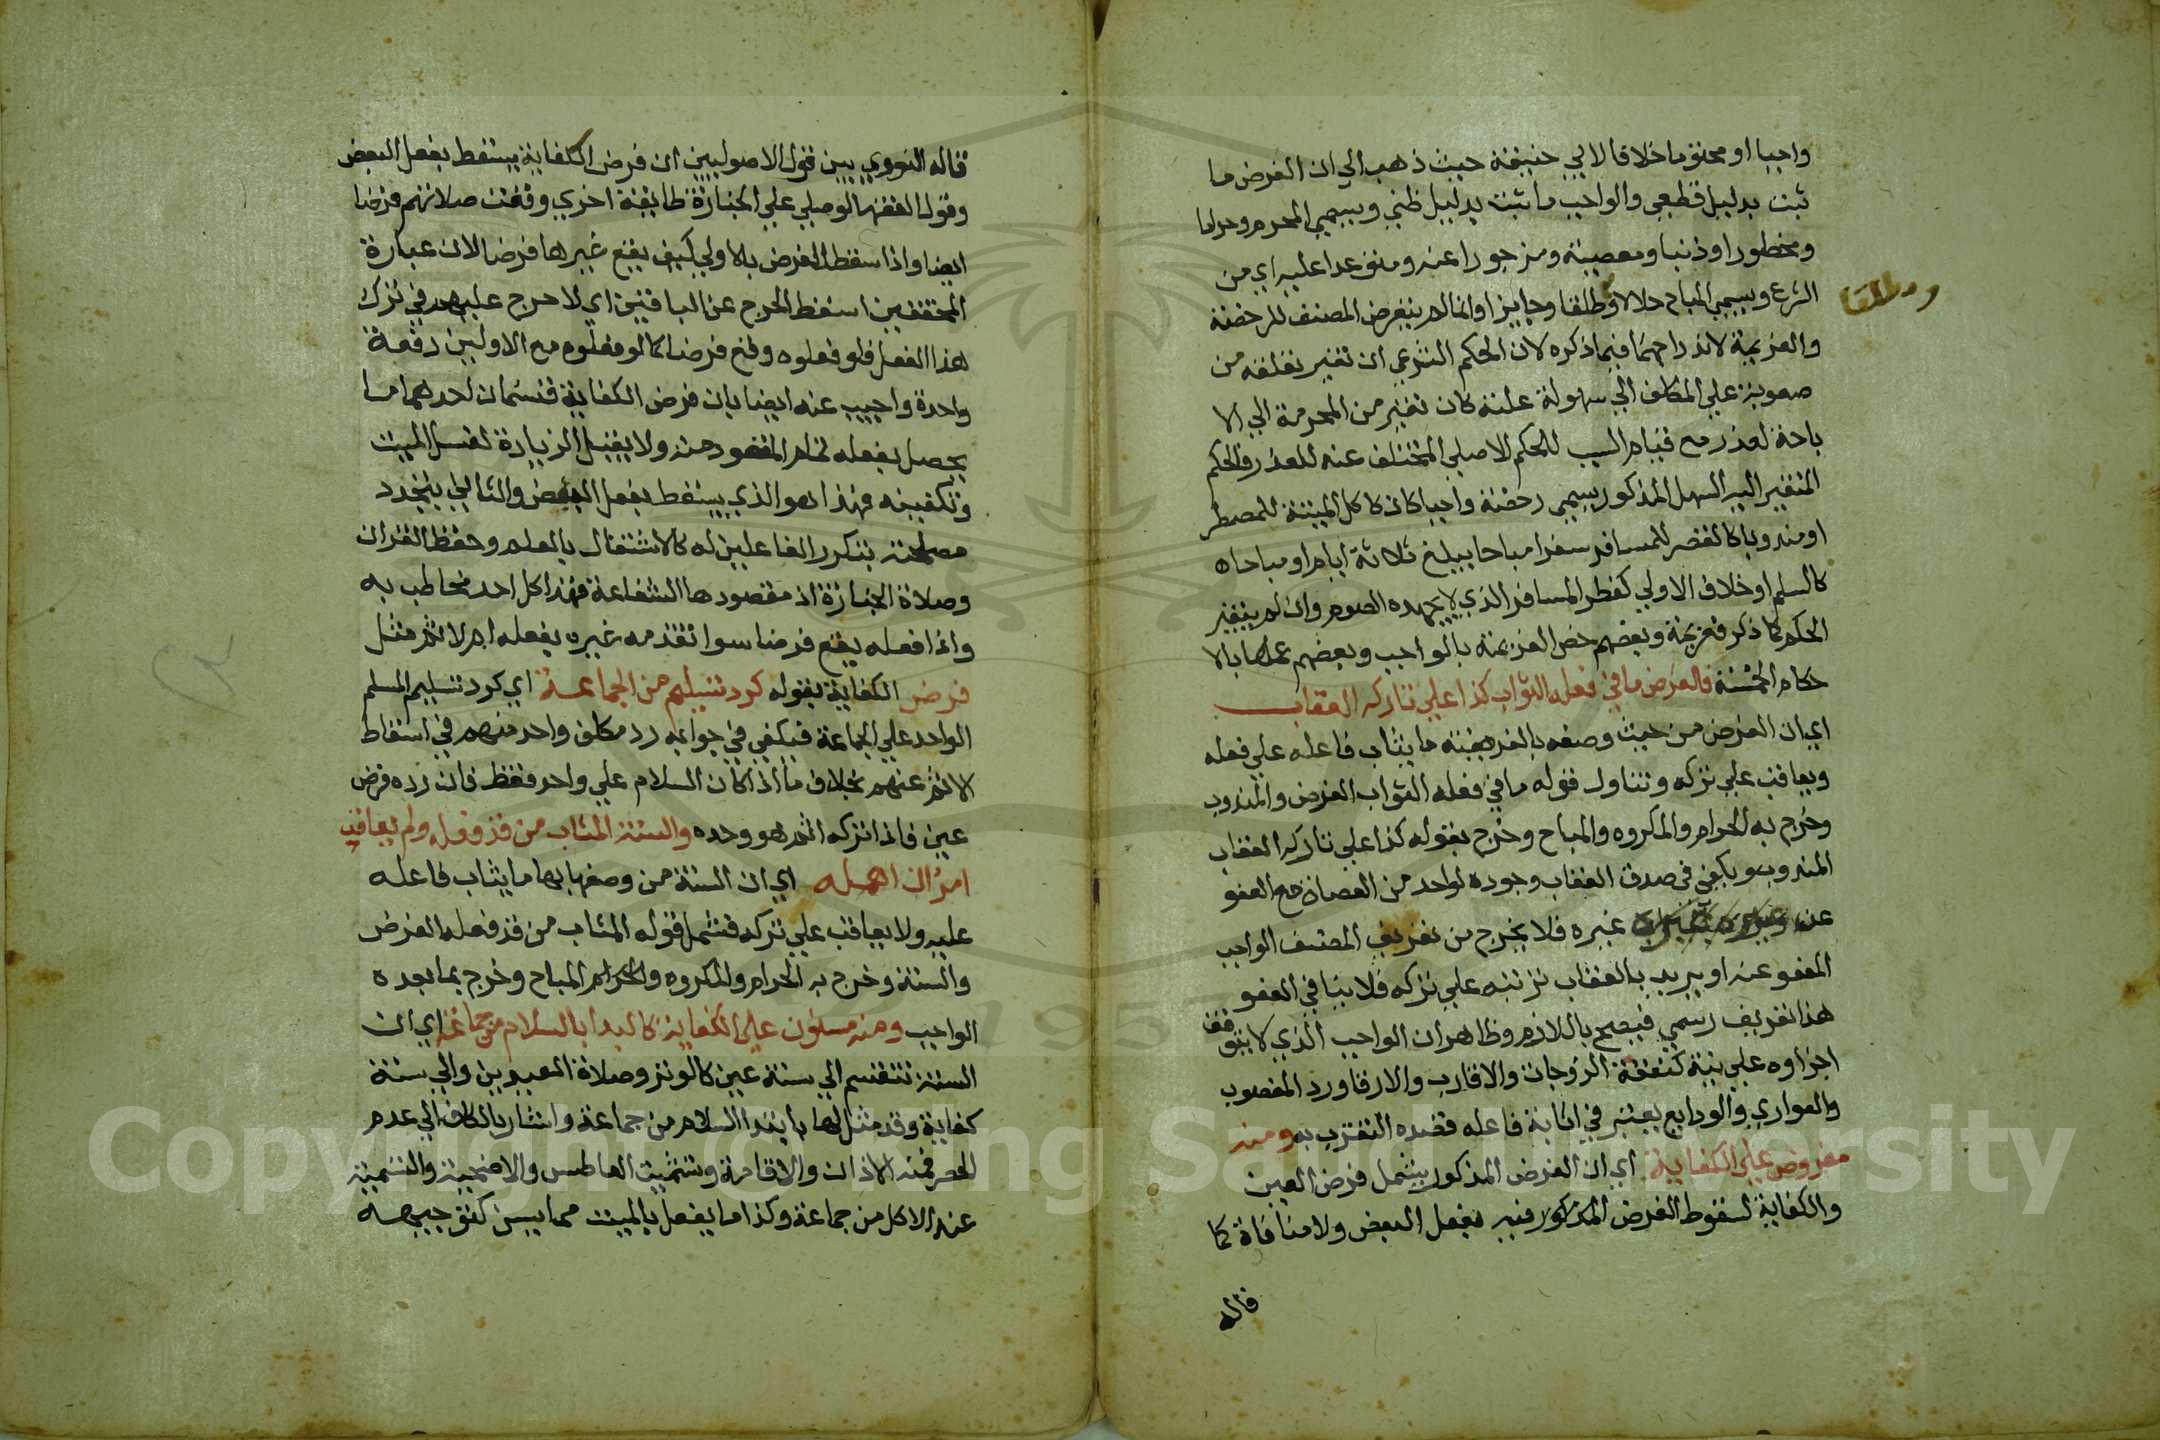 واجبا او محتوما خلافا لابي حنيفة حيث ذهب الي ان الفرض ما
ثبت بدليل قطعي والواجب ما ثبت بدليل ظني ويسمي المحرم وحراما
ومحظورا وذنبا ومعصية ومزجورا عنه ومتوعدا عليه اي من
الشرع ويسمي المباح حلالا وطلقا وجايزا وانما لم يتعرض المصنف للرخصة
ومطلقا
والعزيمة لاندراجهما فيما ذكره لان الحكم الشرعي ان تغير تعلقه من
صعوبة علي المكلف الي سهولة علته كان تغير من الحرمة الي الا
باحة لعذر مع قيام السبب للحكم الاصلي المتخلف عنه للعذر والحكم
المتغير اليه السهل المذكور يسمي رخصة واجبا كان كاكل الميتة للمضطر
او مندوبا كالقصر للمسافر سفرا مباحا يبلغ ثلاثة ايام او مباحا
كالسلم او خلاف الاولي كفطر المسافر الذي لا يجهده الصوم وان لم يتغير
الحكم كما ذكر فعزيمة وبعضهم خص العزيمة بالواجب وبعضهم عمها بالا
حكام الخمسة فالفرض ما في فعله الثواب كذا علي تاركه العقاب
اي ان الفرض من حيث وصفه بالفرضية ما يثاب فاعله علي فعله
ويعاقب علي تركه وتناول قوله ما في فعله الثواب الفرض والمندوب
وخرج به الحرام والمكروه والمباح وخرج بقوله كذا علي تاركه العقاب
المندوب ويكفي في صدق العقاب وجوده لواحد من العصاة مع العفو
عن غيره فلا يخرج من تعريف المصنف الواجب
المعفو عنه او يريد بالعقاب ترتبه علي تركه فلا ينافي العفو
هذا تعريف رسمي فيصح باللازم وظاهر ان الواجب الذي لا يتوقف
اجزاوه علي نية كنفقة الزوجات والاقارب والارقا ورد المغصوب
والعواري والودايع يعتبر في اثابة فاعله قصده التقرب به ومنه
مفروض علي الكفاية اي ان الفرض المذكور يشمل فرض العين
والكفاية لسقوط الفرض المذكور فيه بفعل البعض ولا منافاة كما
قاله
قاله النووي بين قول الاصوليين ان فرض الكفاية يسقط بفعل البعض
وقول الفقها لو صلي علي الجنازة طايفة اخري وقعت صلاتهم فرضا
ايضا واذا سقط الفرض بالاولي كيف يقع غيرها فرضا لان عبارة
المحققين اسقط الحرج عن الباقين اي لا حرج عليهم في ترك
هذا الفعل فلو فعلوه وقع فرضا كما لو فعلوه مع الاولين دفعة
واحدة واجيب عنه ايضا بان فرض الكفاية قسمان احدهما ما
يحصل بفعله تمام المقصود منه ولا يقبل الزيادة لغسل الميت
وتكفينه فهذا هو الذي يسقط بفعل البعض والثاني يتجدد
مصلحته بتكرر الفاعلين له كالاشتغال بالعلم وحفظ القران
وصلاة الجنازة اذ مقصودها الشفاعة فهذا كل احد مخاطب به
واذا فعله يقع فرضا سوا تقدمه غيره بفعله ام لا ثم مثل
فرض الكفاية بقوله كرد تسليم من الجماعة اي كرد تسليم المسلم
الواحد علي الجماعة فيكفي في جوابه رد مكلف واحد منهم في اسقاط
الاثم عنهم بخلاف ما اذا كان السلام علي واحد فقط فان رده فرض
عين فاذا تركه اثم هو وحده والسنة المثاب من قد فعله ولم يعاقب
امرؤ ان اهمله اي ان السنة من وصفها بها ما يثاب فاعله
عليه ولا يعاقب علي تركه فشمل قوله المثاب من قد فعله الفرض
والسنة وخرج به الحرام والمكروه والحرام المباح وخرج بما بعده
الواجب ومنه مسنون علي الكفاية كالبدا بالسلام من جماعة اي ان
السنة تنقسم الي سنة عين كالوتر وصلاة العيدين والي سنة
كفاية وقد مثل لها بابتدا السلام من جماعة واشار بالكاف الي عدم
الحصر فمنه الاذان والاقامة وتشميت العاطس والاضحية والتسمية
عند الاكل من جماعة وكذا ما يفعل بالميت مما يسن كفتوجيهه